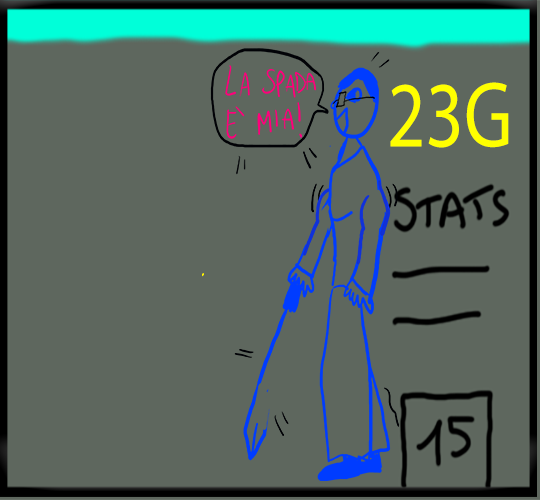 LA SPADA
E' MIA!
23G
STATS
15